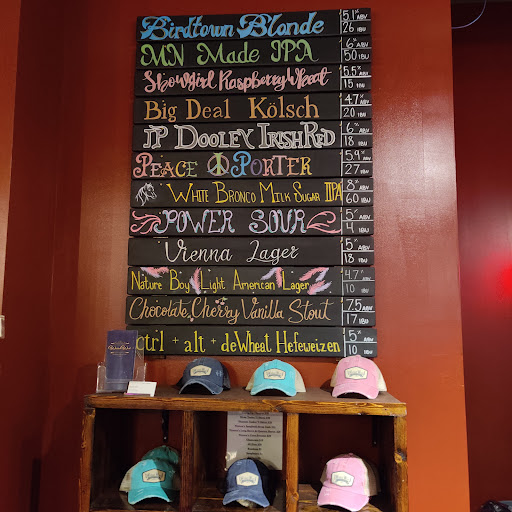 Birdtown Blonde 5.1% ABV 26 IBU
MN Made IPA 6% ABV 50 IBU
Showgirl Raspberry Wheat 5.5% ABV 15 IBU
Big Deal Kölsch 4.7% ABV 20 IBU
JP Dooley Irish Red 6% ABV 18 IBU
Peace Porter 5.9% ABV 27 IBU
White Bronco Milk Sugar IIPA 8% ABV 60 IBU
Power Sour 5% ABV 4 IBU
Vienna Lager 5% ABV 18 IBU
Nature Boy Light American Lager 4.7% ABV 10 IBU
Chocolate Cherry Vanilla Stout 7.5 ABV 17 IBU
ctrl + alt + deWheat Hefeweizen 5% ABV 10 IBU